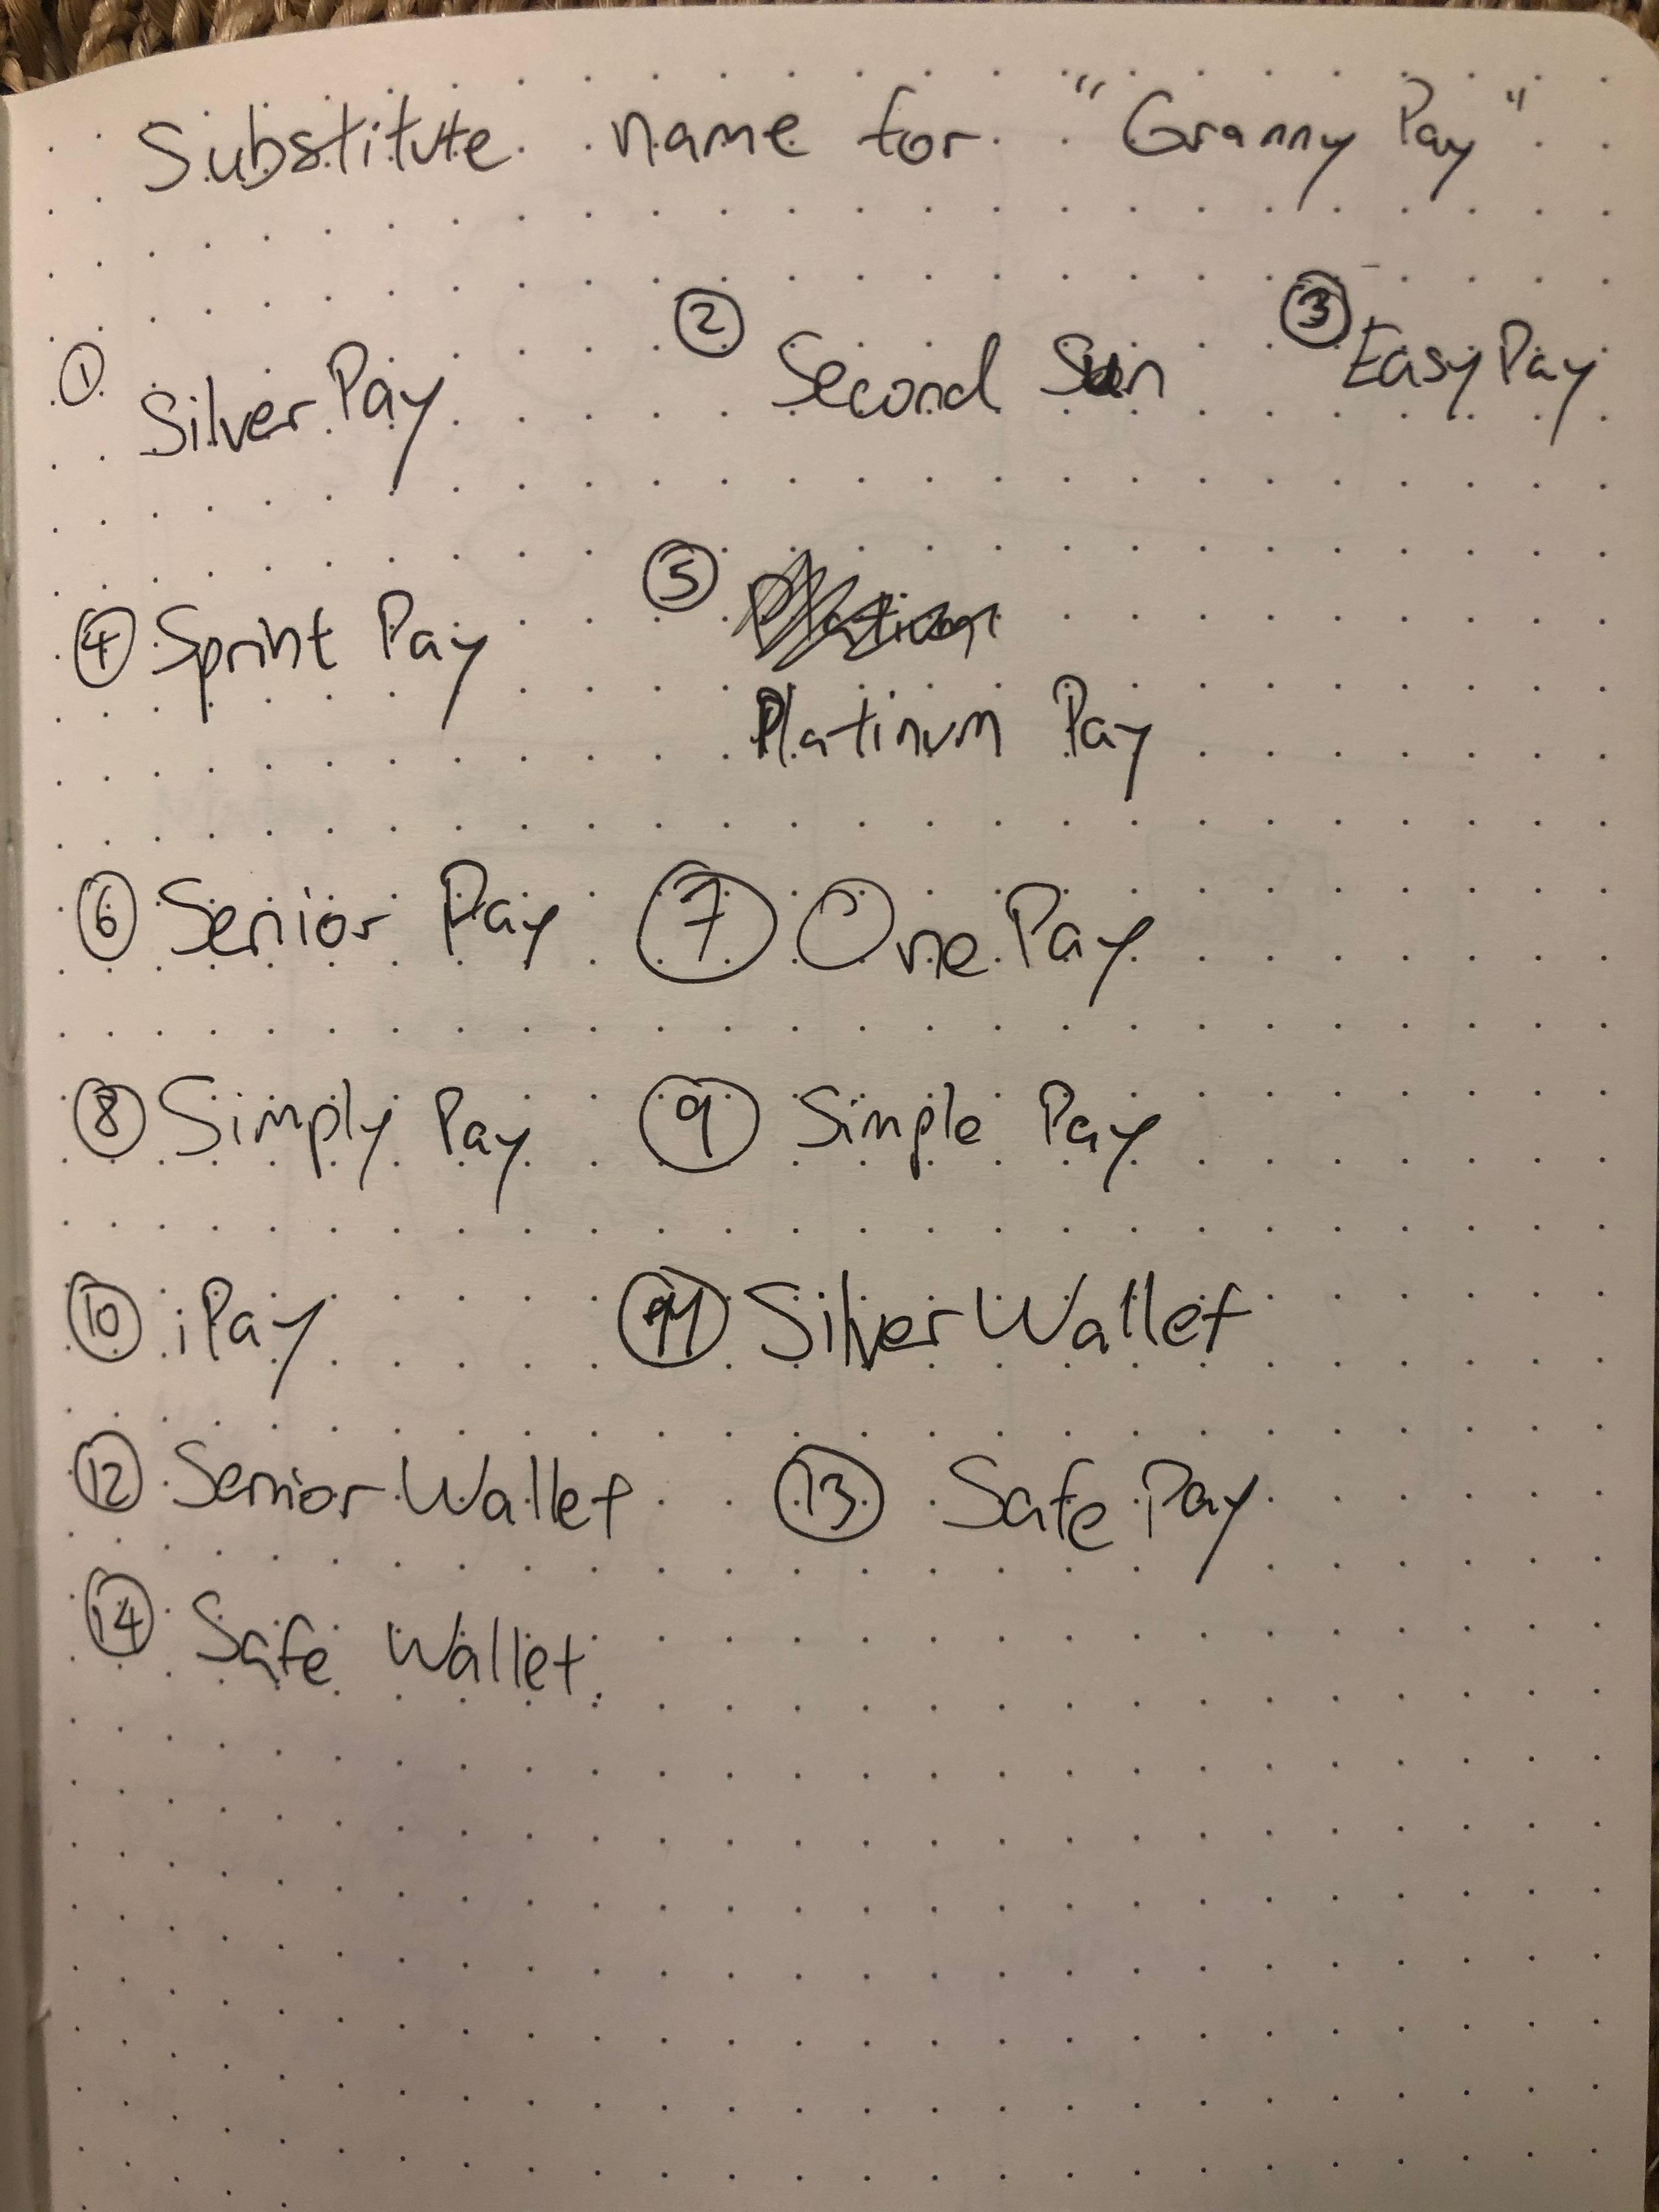 Substitute name for "Granny Pay"
① Silver Pay ② Second Sun ③ Easy Pay
④ Sprint Pay ⑤ Platinum Pay
⑥ Senior Pay ⑦ One Pay
⑧ Simply Pay ⑨ Simple Pay
⑩ iPay ⑪ Silver Wallet
⑫ Senior Wallet ⑬ Safe Pay
⑭ Safe Wallet.